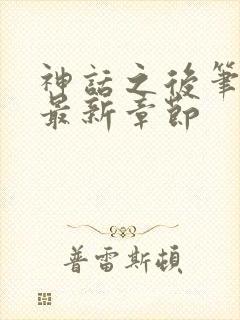 神話之後筆
最新章節
普雷斯頓